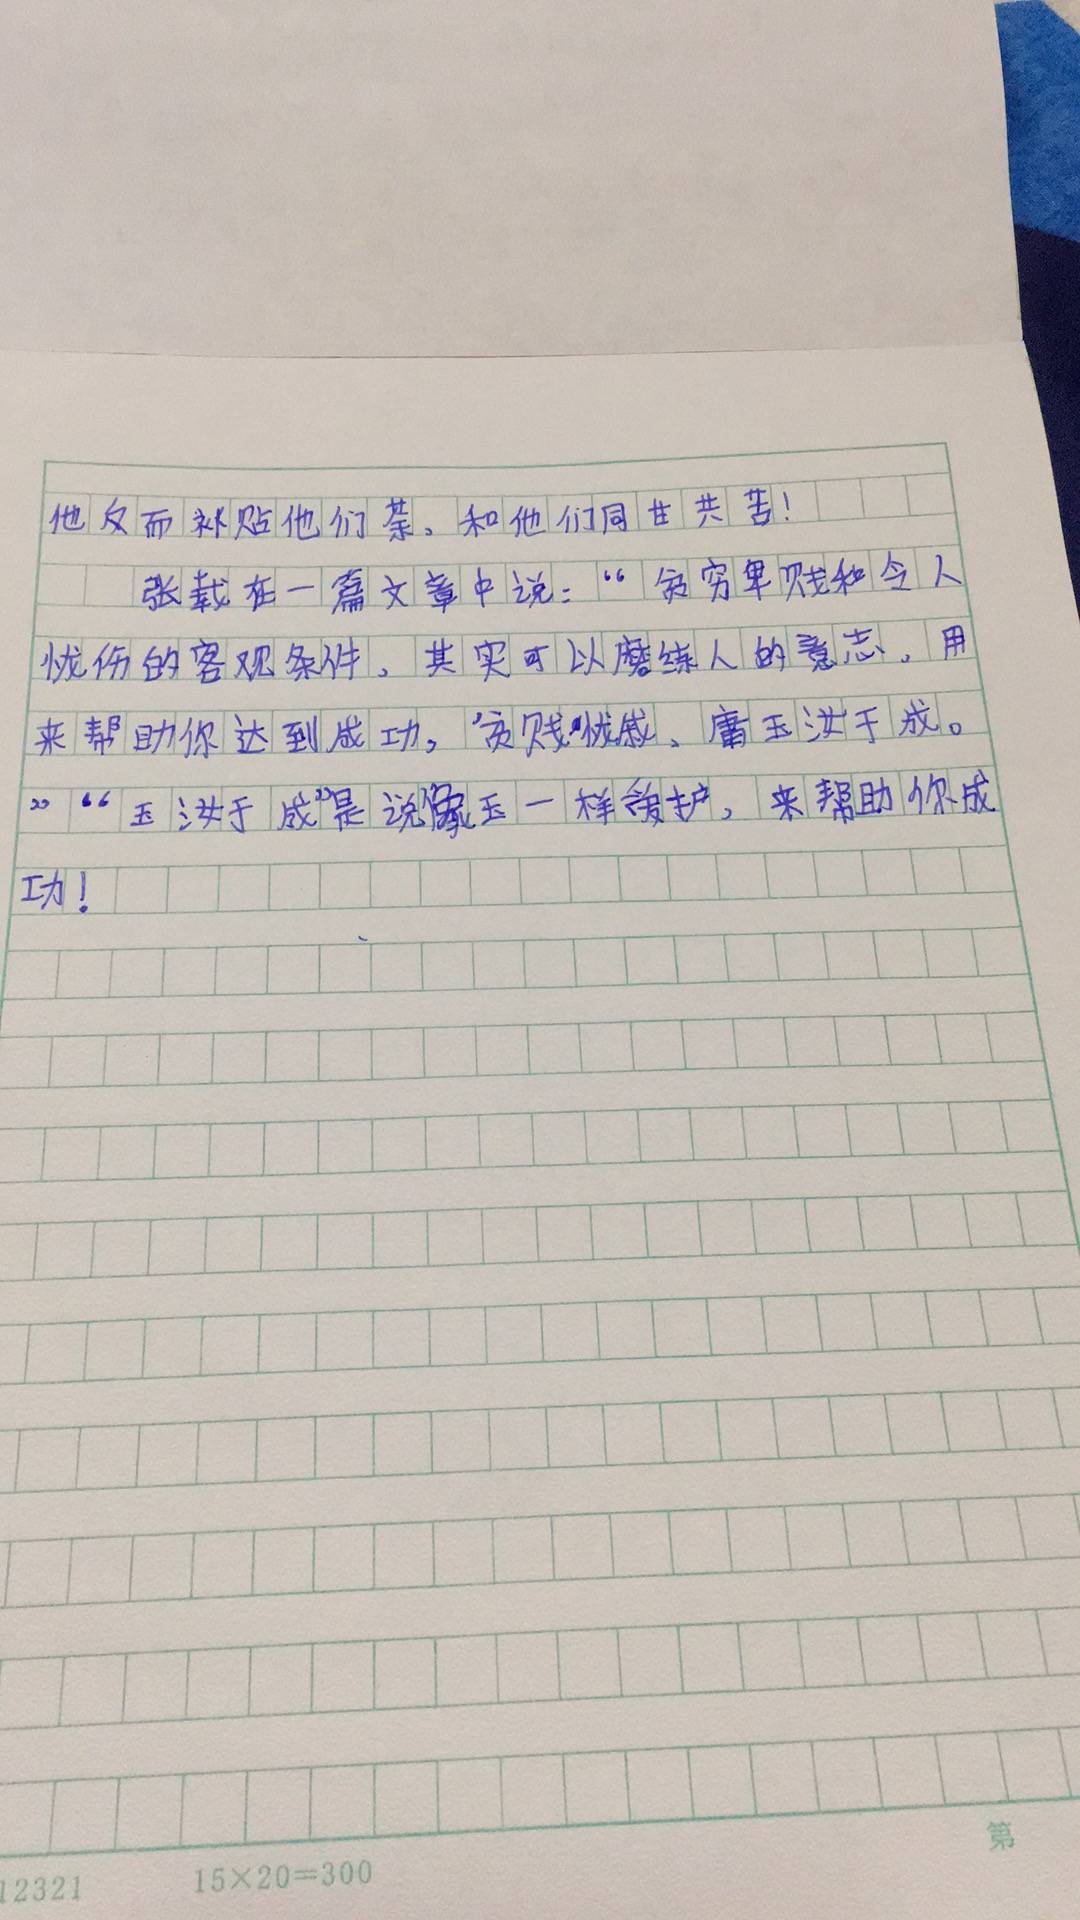 他反而补贴他们菜。和他们同甘共苦！
张载在一篇文章中说：“贫穷卑贱和令人
忧伤的客观条件，其实可以磨练人的意志，用
来帮助你达到成功。‘贫贱忧戚、庸玉汝于成。
”“玉汝于成”是说像玉一样爱护，来帮助你成
功！
第
12321
15×20=300